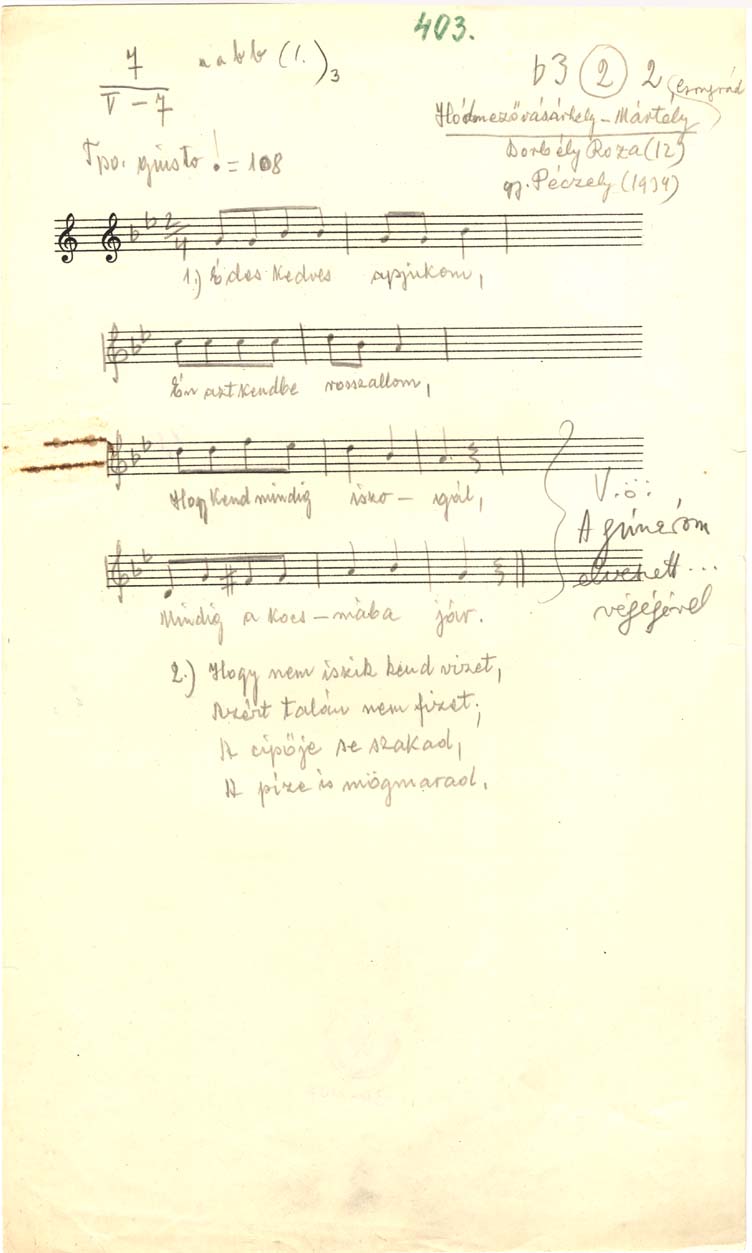 403.
7
V – 7
a a b b (1.)3
b3 (2) 2 (Csongrád
Hódmezővásárhely – Mártély
Borbély Roza (12)
gy. Péczely (1934)
Tpo. giusto ♩ = 108
2/4
1.) Édes kedves apjukom,
Én azt kendbe rosszallom,
Hogy kend mindig iszo – gál,
Mindig a kocs – mába jár.
V.ö.:
A gúnárom
elveszett...
végével
2.) Hogy nem iszik kend vizet,
Azért talán nem fizet;
A cipője se szakad,
A pize is mögmarad.